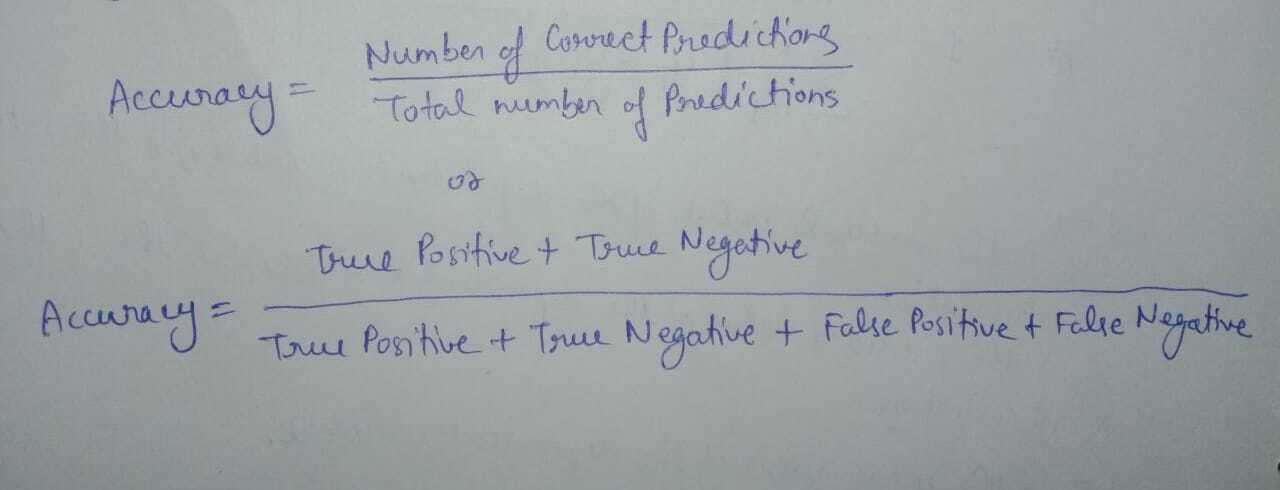 Accuracy = Number of Correct Predictions
Total number of Predictions
or
True Positive + True Negative
Accuracy =
True Positive + True Negative + False Positive + False Negative